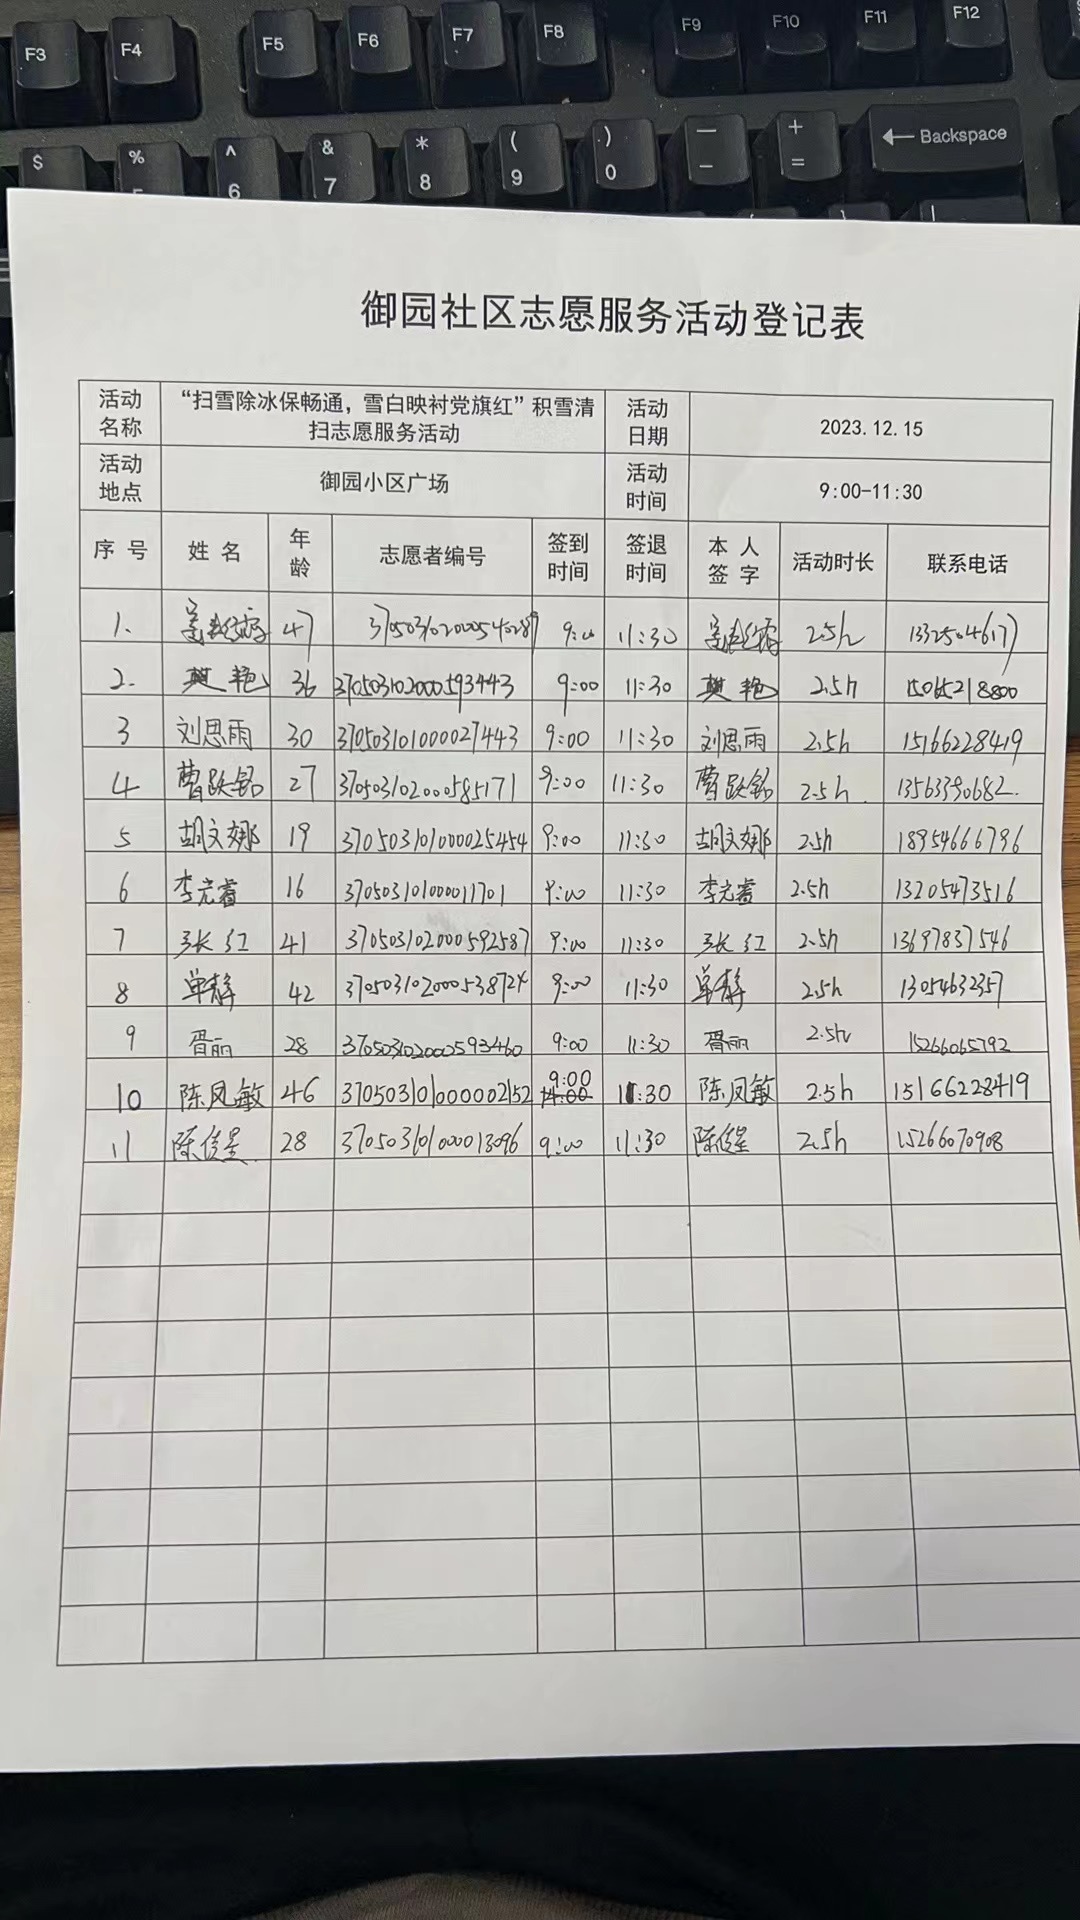 F3 F4 F5 F6 F7 F8 F9 F10 F11 F12
$ % ^ & * ( ) — + ← Backspace
6 7 8 9 0 - =
御园社区志愿服务活动登记表
活动名称 “扫雪除冰保畅通，雪白映衬党旗红”积雪清扫志愿服务活动 活动日期 2023.12.15
活动地点 御园小区广场 活动时间 9:00-11:30
序号 姓名 年龄 志愿者编号 签到时间 签退时间 本人签字 活动时长 联系电话
1. 47 9:00 11:30 2.5h
2. 樊艳 36 370503102000593443 9:00 11:30 樊艳 2.5h
3 刘思雨 30 370503101000027443 9:00 11:30 刘思雨 2.5h 15166228419
4 曹跃铭 27 370503102000585171 9:00 11:30 曹跃铭 2.5h. 13563390682.
5 胡文娜 19 370503101000025454 9:00 11:30 胡文娜 2.5h 18954666796
6 李光睿 16 370503101000011701 9:00 11:30 李光睿 2.5h 13205473516
7 张红 41 370503102000592587 9:00 11:30 张红 2.5h 13697837546
8 单静 42 370503102000538724 9:00 11:30 单静 2.5h 13054632357
9 胥丽 28 370503102000593460 9:00 11:30 胥丽 2.5h 15266065792
10 陈凤敏 46 3705031010000002152 9:00 11:30 陈凤敏 2.5h 15166228419
11 陈俊星 28 370503101000013096 9:00 11:30 陈俊星 2.5h 15266070908